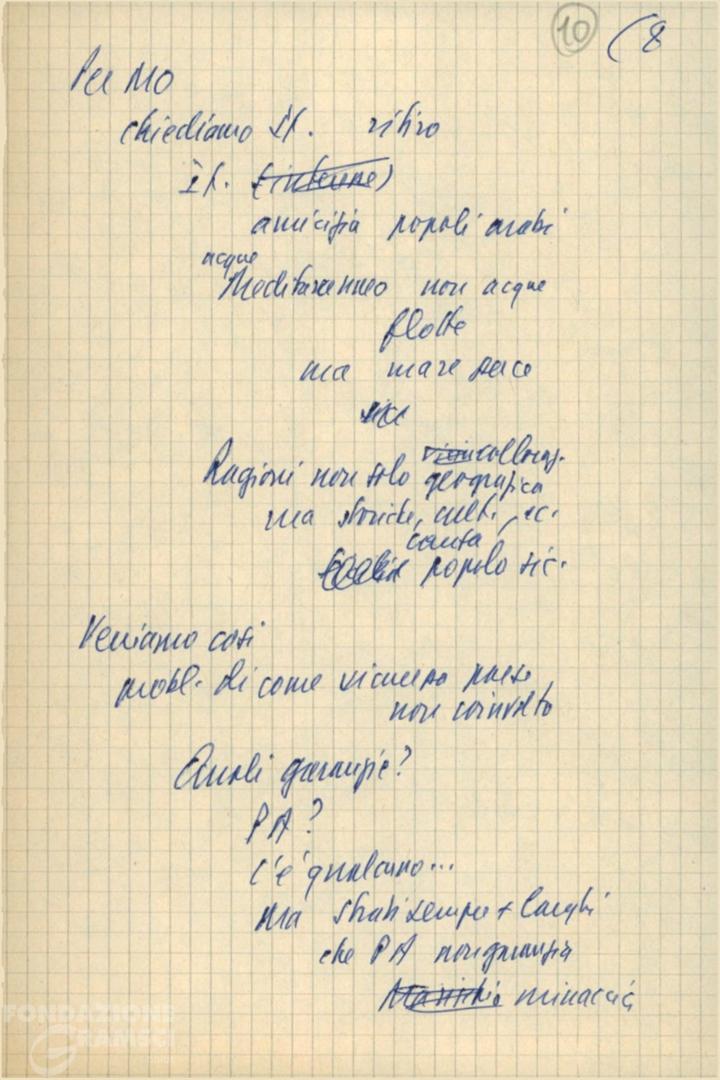 10 (8
Per MO
chiediamo It. ritiro
It. (interne)
amicizia popoli arabi
acque
Mediterranneo non acque
flotte
ma mare pace
Ragioni non solo collocaz.
geografica
ma storiche, cult., ec.
causa
popolo sic.
Veniamo così
probl. di come sicurezza paese
non coinvolto
Quali garanzie?
PA?
c'è qualcuno...
ma strati sempre + larghi
che PA non garanzia
minaccia
FONDAZIONE
GRAMSCI